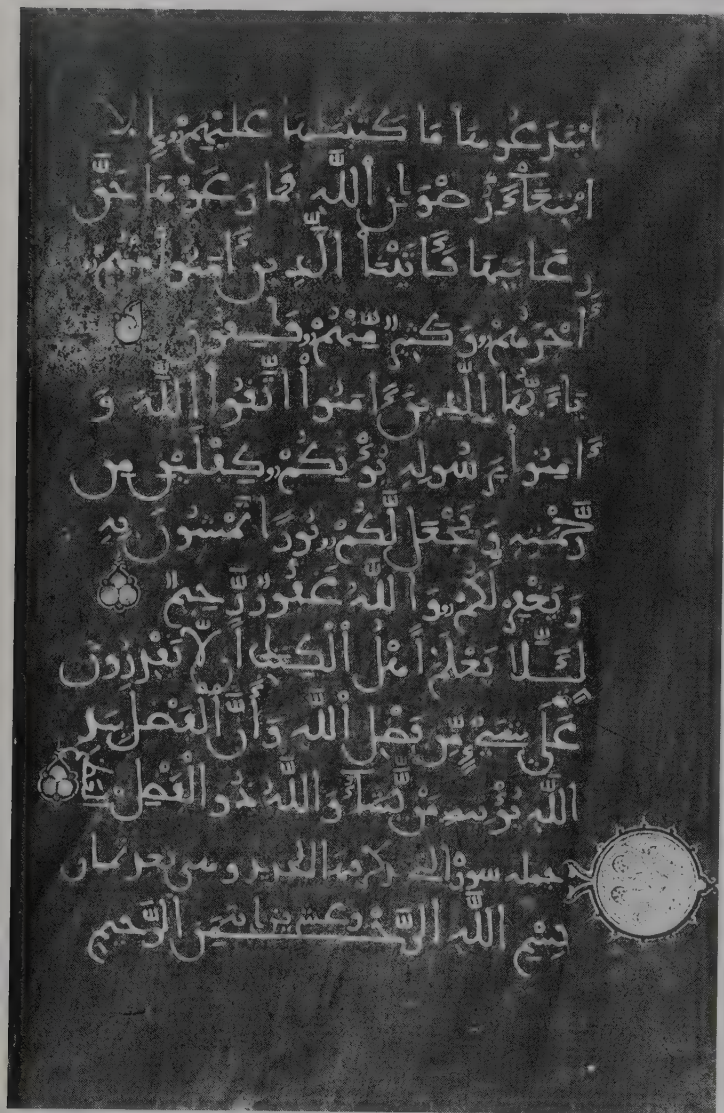 ابْتَدَعُوهَا مَا كَتَبْنَٰهَا عَلَيْهِمْ إِلَّا
ابْتِغَآءَ رِضْوَٰنِ اللَّهِ فَمَا رَعَوْهَا حَقَّ
رِعَايَتِهَا فَـَٔاتَيْنَا الَّذِينَ ءَامَنُوا مِنْهُمْ
أَجْرَهُمْ وَكَثِيرٌ مِّنْهُمْ فَٰسِقُونَ
يَٰٓأَيُّهَا الَّذِينَ ءَامَنُوا اتَّقُوا اللَّهَ وَ
ءَامِنُوا بِرَسُولِهِ يُؤْتِكُمْ كِفْلَيْنِ مِن
رَّحْمَتِهِ وَيَجْعَل لَّكُمْ نُورًا تَمْشُونَ بِهِ
وَيَغْفِرْ لَكُمْ وَاللَّهُ غَفُورٌ رَّحِيمٌ
لِّئَلَّا يَعْلَمَ أَهْلُ الْكِتَٰبِ أَلَّا يَقْدِرُونَ
عَلَىٰ شَيْءٍ مِّن فَضْلِ اللَّهِ وَأَنَّ الْفَضْلَ بِيَدِ
اللَّهِ يُؤْتِيهِ مَن يَّشَآءُ وَاللَّهُ ذُو الْفَضْلِ الْعَظِيمِ
جملة سورة التي فيها الحديد وهي ثمان
وعشرين اية
بِسْمِ اللَّهِ الرَّحْمَٰنِ الرَّحِيمِ